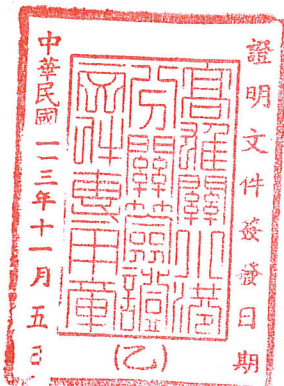 證明文件簽發日期
高雄關小港
分關簽證
文件專用章
中華民國一一三年十一月五日
(乙)